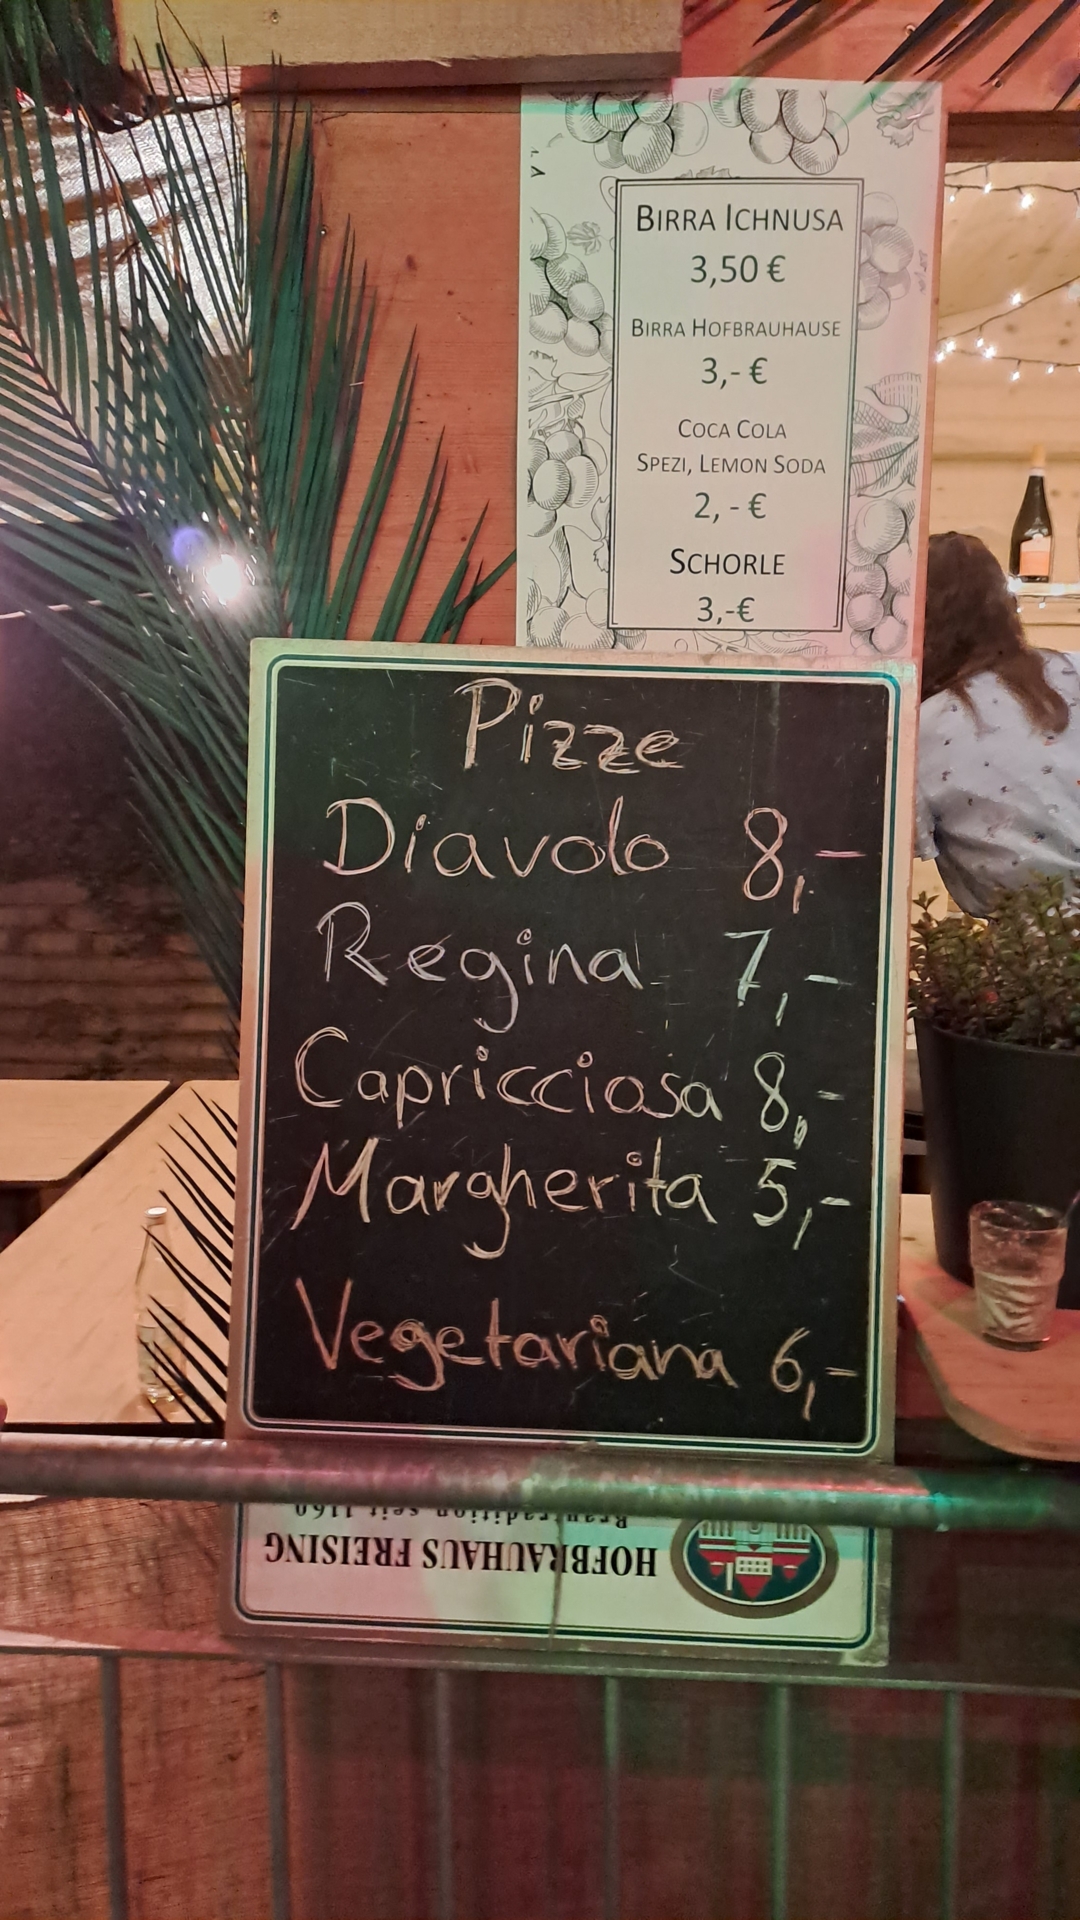 BIRRA ICHNUSA
3,50 €
BIRRA HOFBRAUHAUSE
3,- €
COCA COLA
SPEZI, LEMON SODA
2, - €
SCHORLE
3,-€
Pizze
Diavolo 8,-
Regina 7,-
Capricciosa 8,-
Margherita 5,-
Vegetariana 6,-
HOFBRAUHAUS FREISING
Brautradition seit 1160